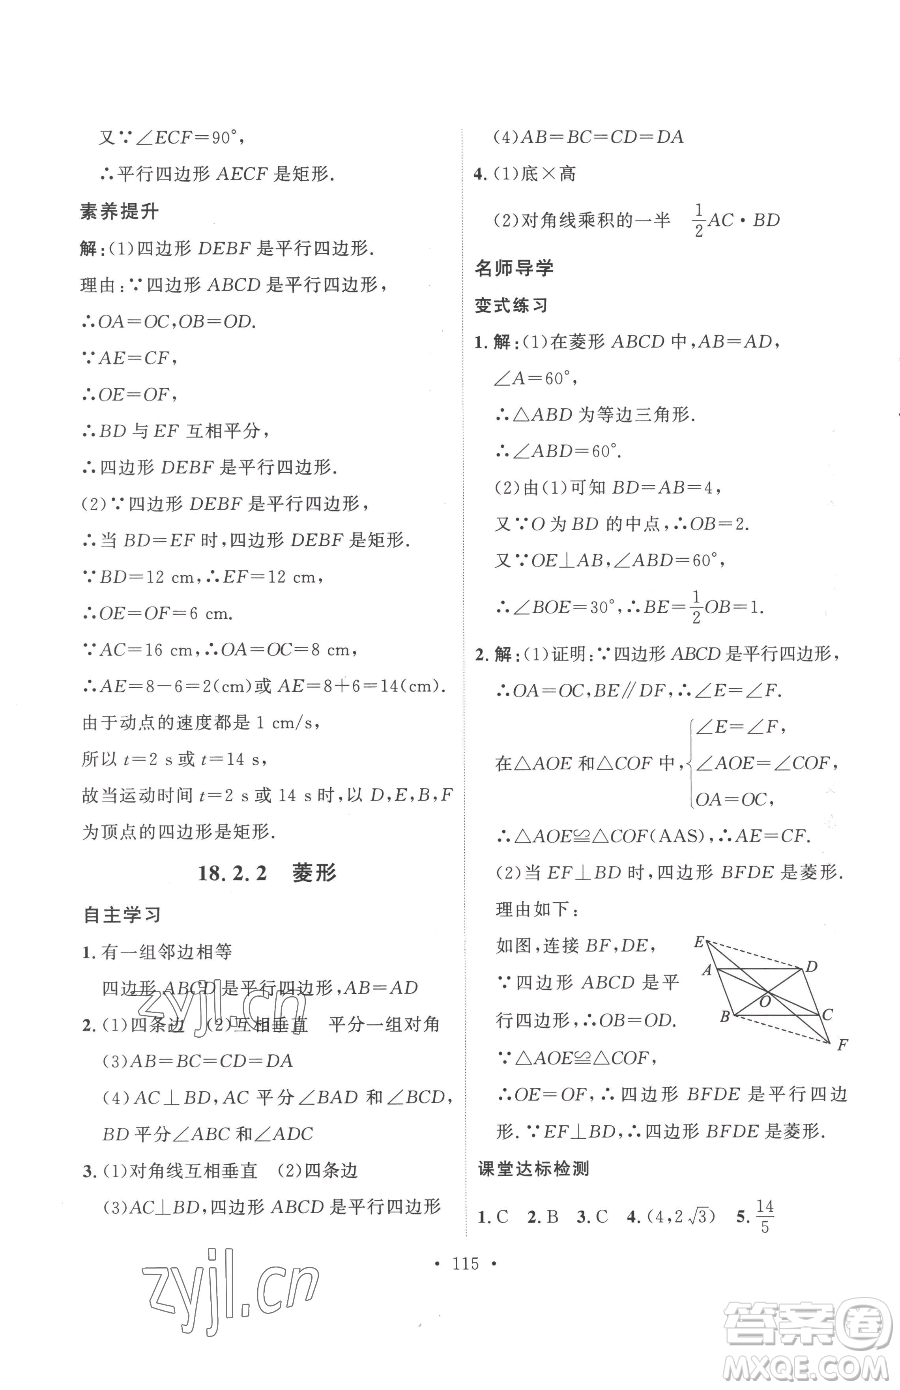 又∵∠ECF=90°,
∴平行四边形 AECF 是矩形.
素养提升
解:(1)四边形 DEBF 是平行四边形.
理由:∵四边形 ABCD 是平行四边形,
∴OA=OC,OB=OD.
∵AE=CF,
∴OE=OF,
∴BD 与 EF 互相平分,
∴四边形 DEBF 是平行四边形.
(2)∵四边形 DEBF 是平行四边形,
∴当 BD=EF 时,四边形 DEBF 是矩形.
∵BD=12 cm,∴EF=12 cm,
∴OE=OF=6 cm.
∵AC=16 cm,∴OA=OC=8 cm,
∴AE=8-6=2(cm)或 AE=8+6=14(cm).
由于动点的速度都是 1 cm/s,
所以 t=2 s 或 t=14 s,
故当运动时间 t=2 s 或 14 s 时,以 D,E,B,F
为顶点的四边形是矩形.
18.2.2 菱形
自主学习
1.有一组邻边相等
四边形 ABCD 是平行四边形,AB=AD
2.(1)四条边 (2)互相垂直 平分一组对角
(3)AB=BC=CD=DA
(4)AC⊥BD,AC 平分∠BAD 和∠BCD,
BD 平分∠ABC 和∠ADC
3.(1)对角线互相垂直 (2)四条边
(3)AC⊥BD,四边形 ABCD 是平行四边形
(4)AB=BC=CD=DA
4.(1)底×高
(2)对角线乘积的一半 1/2 AC·BD
名师导学
变式练习
1.解:(1)在菱形 ABCD 中,AB=AD,
∠A=60°,
∴△ABD 为等边三角形.
∴∠ABD=60°.
(2)由(1)可知 BD=AB=4,
又∵O 为 BD 的中点,∴OB=2.
又∵OE⊥AB,∠ABD=60°,
∴∠BOE=30°,∴BE=1/2 OB=1.
2.解:(1)证明:∵四边形 ABCD 是平行四边形,
∴OA=OC,BE∥DF,∴∠E=∠F.
在△AOE 和△COF 中,
∠E=∠F,
∠AOE=∠COF,
OA=OC,
∴△AOE≌△COF(AAS),∴AE=CF.
(2)当 EF⊥BD 时,四边形 BFDE 是菱形.
理由如下:
如图,连接 BF,DE,
∵四边形 ABCD 是平
行四边形,∴OB=OD.
∵△AOE≌△COF,
∴OE=OF,∴四边形 BFDE 是平行四边
形.∵EF⊥BD,∴四边形 BFDE 是菱形.
E
A
D
O
B
C
F
课堂达标检测
1.C 2.B 3.C 4.(4,2√3) 5.14/5
• 115 •
zyjl.cn
zyjl.cn
答案圈
MXQE.COM